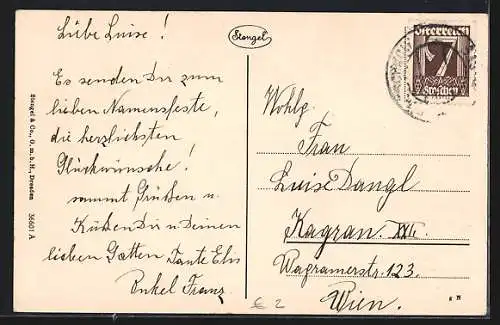 Liebe Luise!
Es senden Dir zum
lieben Namensfeste,
die herzlichsten
Glückwünsche!
sammt Grüßen u.
Küßen Dir u Deinen
lieben Gatten Tante Elis
Onkel Franz
Stengel & Co., G. m. b. H., Dresden 36601 A
Stengel
Österreich
7
Groschen
Wohlg.
Frau
Luise Dangl
Kagran XXI.
Wagramerstr. 123.
Wien.
€ 2